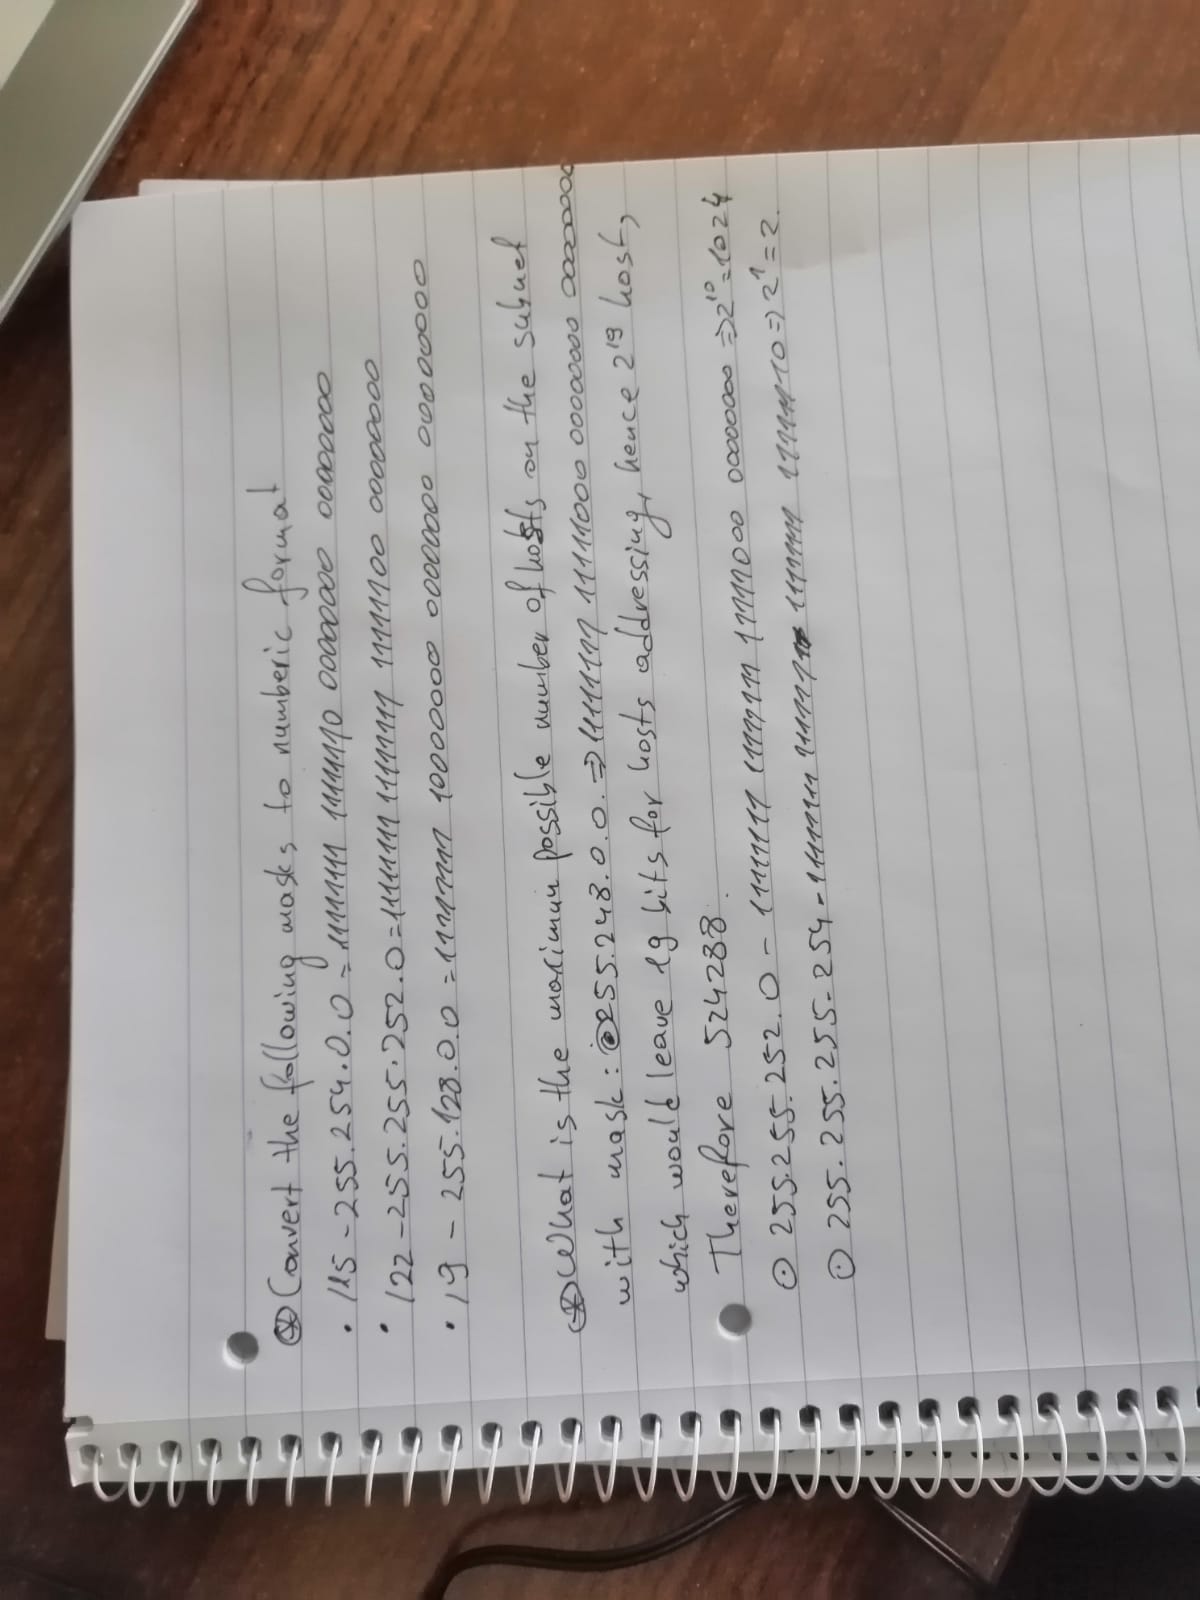 ⊛ Convert the following masks to numberic format
• /15 - 255.254.0.0 = 11111111 11111110 00000000 00000000
• /22 - 255.255.252.0 = 11111111 11111111 11111100 00000000
• /9 - 255.128.0.0 = 11111111 10000000 00000000 00000000
⊛ What is the maximum possible number of hosts on the subnet
with mask: 255.248.0.0. => 11111111 11111000 00000000 00000000
which would leave 19 bits for hosts addressing, hence 2^19 host,
Therefore 524288.
⊙ 255.255.252.0 - 11111111 11111111 11111100 00000000 => 2^10 = 1024
⊙ 255.255.255.254 - 11111111 11111111 11111111 11111110 => 2^1 = 2.